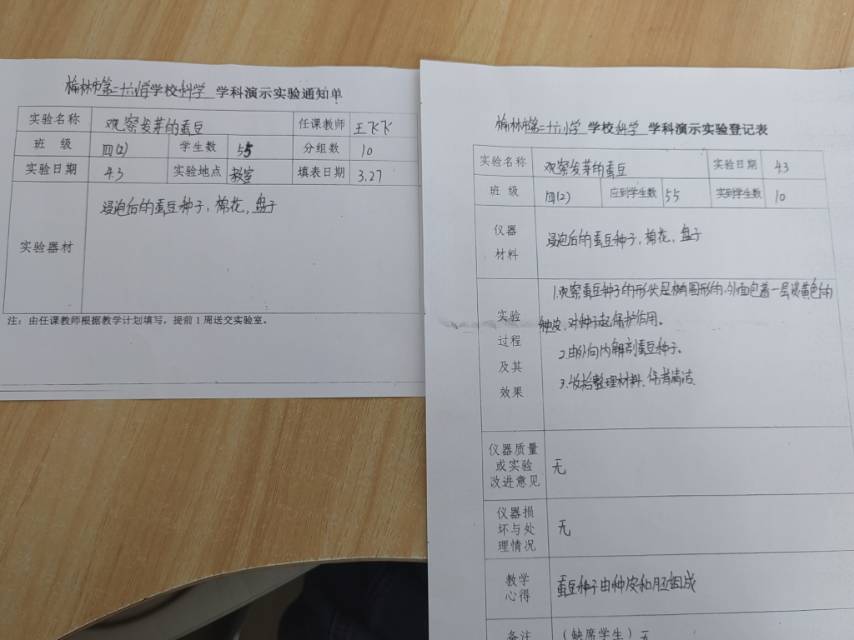 榆林市第二十六小学学校科学 学科演示实验通知单
实验名称 观察发芽的蚕豆 任课教师 王飞飞
班 级 四(2) 学生数 55 分组数 10
实验日期 4.3 实验地点 教室 填表日期 3.27
实验器材 浸泡后的蚕豆种子,棉花,盘子
注:由任课教师根据教学计划填写,提前1周送交实验室。
榆林市第二十六小学 学校科学 学科演示实验登记表
实验名称 观察发芽的蚕豆 实验日期 4.3
班 级 四(2) 应到学生数 55 实到学生数 10
仪器
材料
浸泡后的蚕豆种子,棉花,盘子
实验
过程
及其
效果
1.观察蚕豆种子的形状是椭圆形的,外面包着一层淡黄色的
种皮,对种子起保护作用。
2.由外向内解剖蚕豆种子。
3.收拾整理材料,保持清洁
仪器质量
或实验
改进意见
无
仪器损
坏与处
理情况
无
教学
心得
蚕豆种子由种皮和胚组成
备注 (缺席学生)无